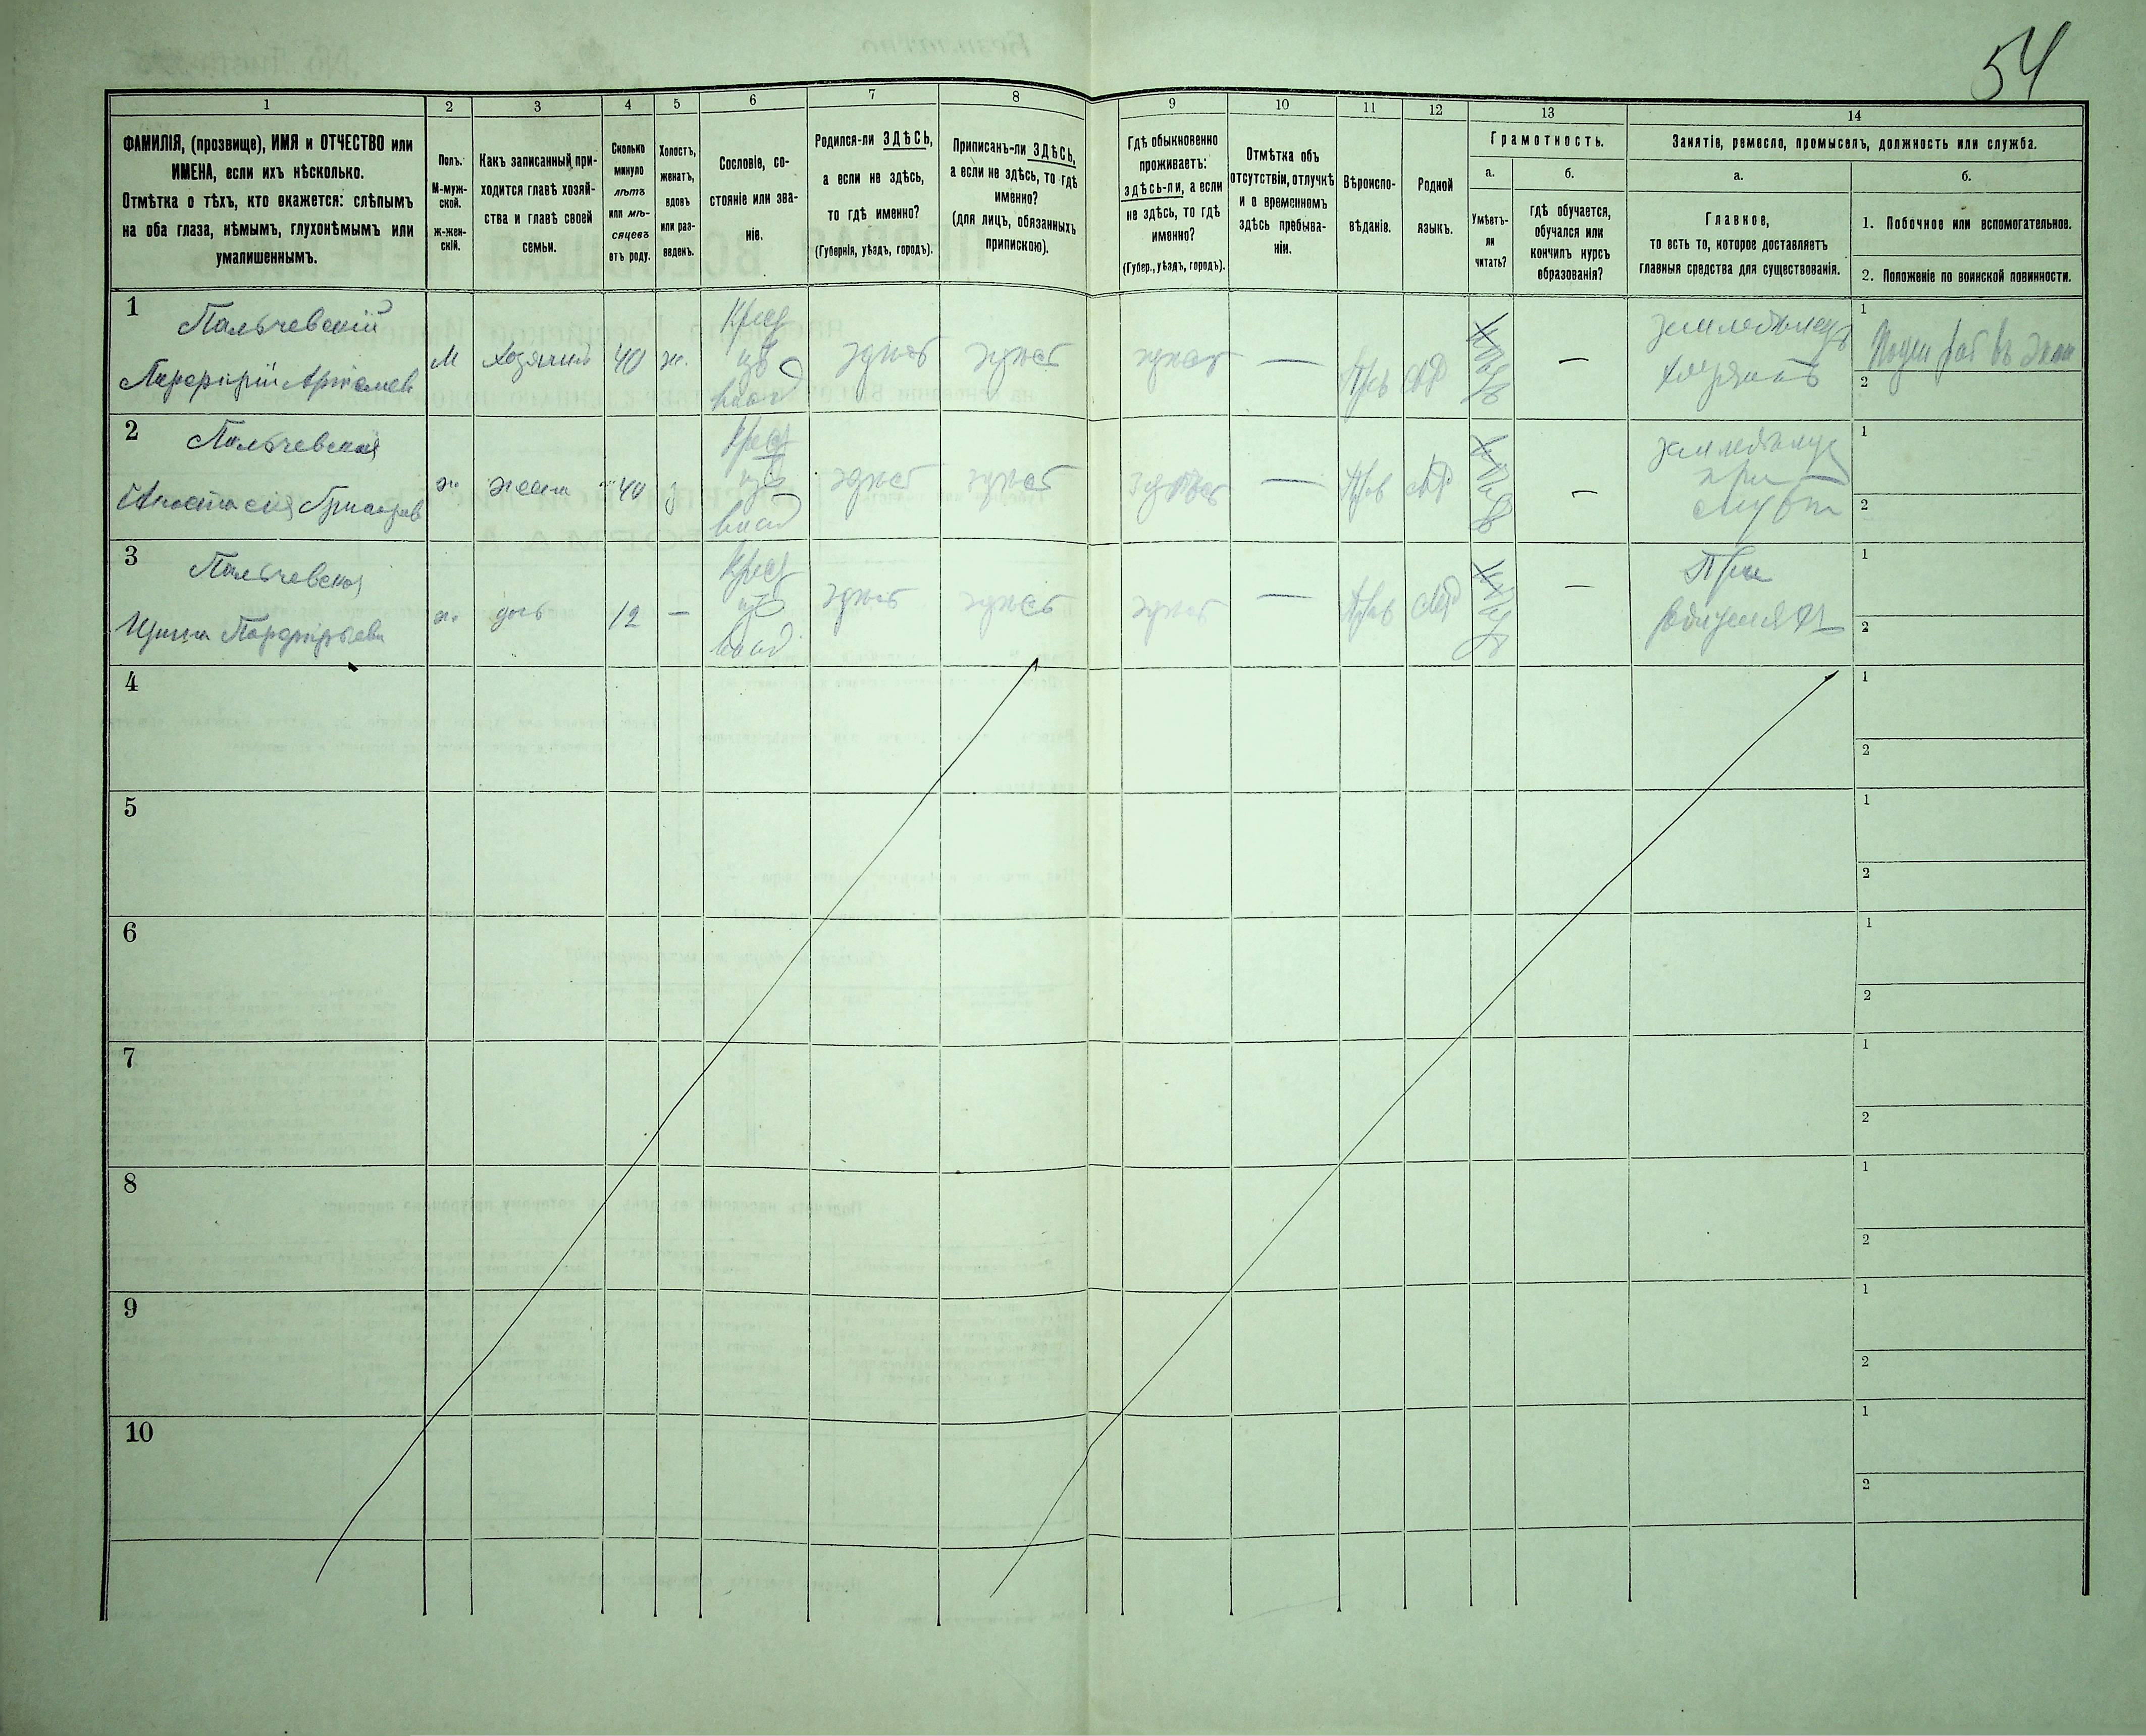 54
1 2 3 4 5 6 7 8 9 10 11 12 13 14
ФАМИЛІЯ, (прозвище), ИМЯ и ОТЧЕСТВО или
ИМЕНА, если ихъ нѣсколько.
Отмѣтка о тѣхъ, кто окажется: слѣпымъ
на оба глаза, нѣмымъ, глухонѣмымъ или
умалишеннымъ.
Полъ.
М-муж-
ской.
ж-жен-
скій.
Какъ записанный при-
ходится главѣ хозяй-
ства и главѣ своей
семьи.
Сколько
минуло
лѣтъ
или мѣ-
сяцевъ
отъ роду.
Холостъ,
женатъ,
вдовъ
или раз-
веденъ.
Сословіе, со-
стояніе или зва-
ніе.
Родился-ли ЗДѢСЬ,
а если не здѣсь,
то гдѣ именно?
(Губернія, уѣздъ, городъ).
Приписанъ-ли ЗДѢСЬ,
а если не здѣсь, то гдѣ
именно?
(для лицъ, обязанныхъ
припискою).
Гдѣ обыкновенно
проживаетъ:
здѣсь-ли, а если
не здѣсь, то гдѣ
именно?
(Губер., уѣздъ, городъ).
Отмѣтка объ
отсутствіи, отлучкѣ
и о временномъ
здѣсь пребыва-
ніи.
Вѣроиспо-
вѣданіе.
Родной
языкъ.
Грамотность.
а.
Умѣетъ-
ли
читать?
б.
гдѣ обучается,
обучался или
кончилъ курсъ
образованія?
Занятіе, ремесло, промыселъ, должность или служба.
а.
Главное,
то есть то, которое доставляетъ
главныя средства для существованія.
б.
1. Побочное или вспомогательное.
2. Положеніе по воинской повинности.
1 Пальчевскій
Парфирій Артемов
М Хозяинъ 40 ж.
Крест
изъ
влад
здѣсь здѣсь здѣсь —
Прав —
земледѣлецъ
хозяинъ
1
2
2 Пальчевская
Анастасія Григорьев
ж жена 40 з
Крест
изъ
влад
здѣсь здѣсь здѣсь —
Прав —
при
1
2
3 Пальчевская
Ирина Парфирьева
ж. дочь 12 —
Крест
изъ
влад
здѣсь здѣсь здѣсь —
Прав —
При
1
2
4
1
2
5
1
2
6
1
2
7
1
2
8
1
2
9
1
2
10
1
2